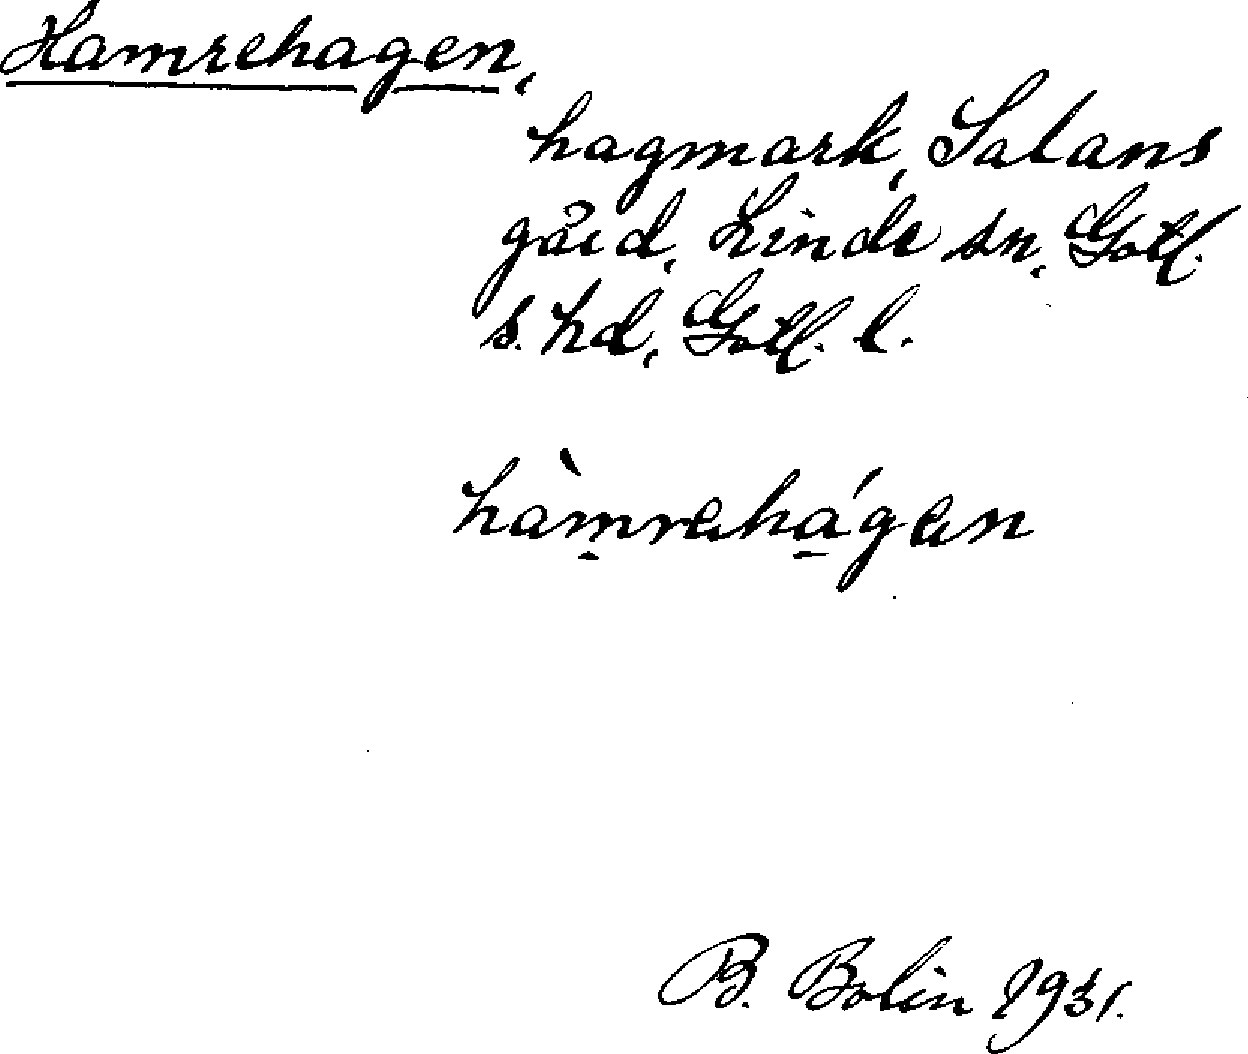 Hamrehagen,
hagmark, Salans
gård, Linde sn, Gotl.
s. hd, Gotl. l.
hàmrahágan
B. Bolin 1931.